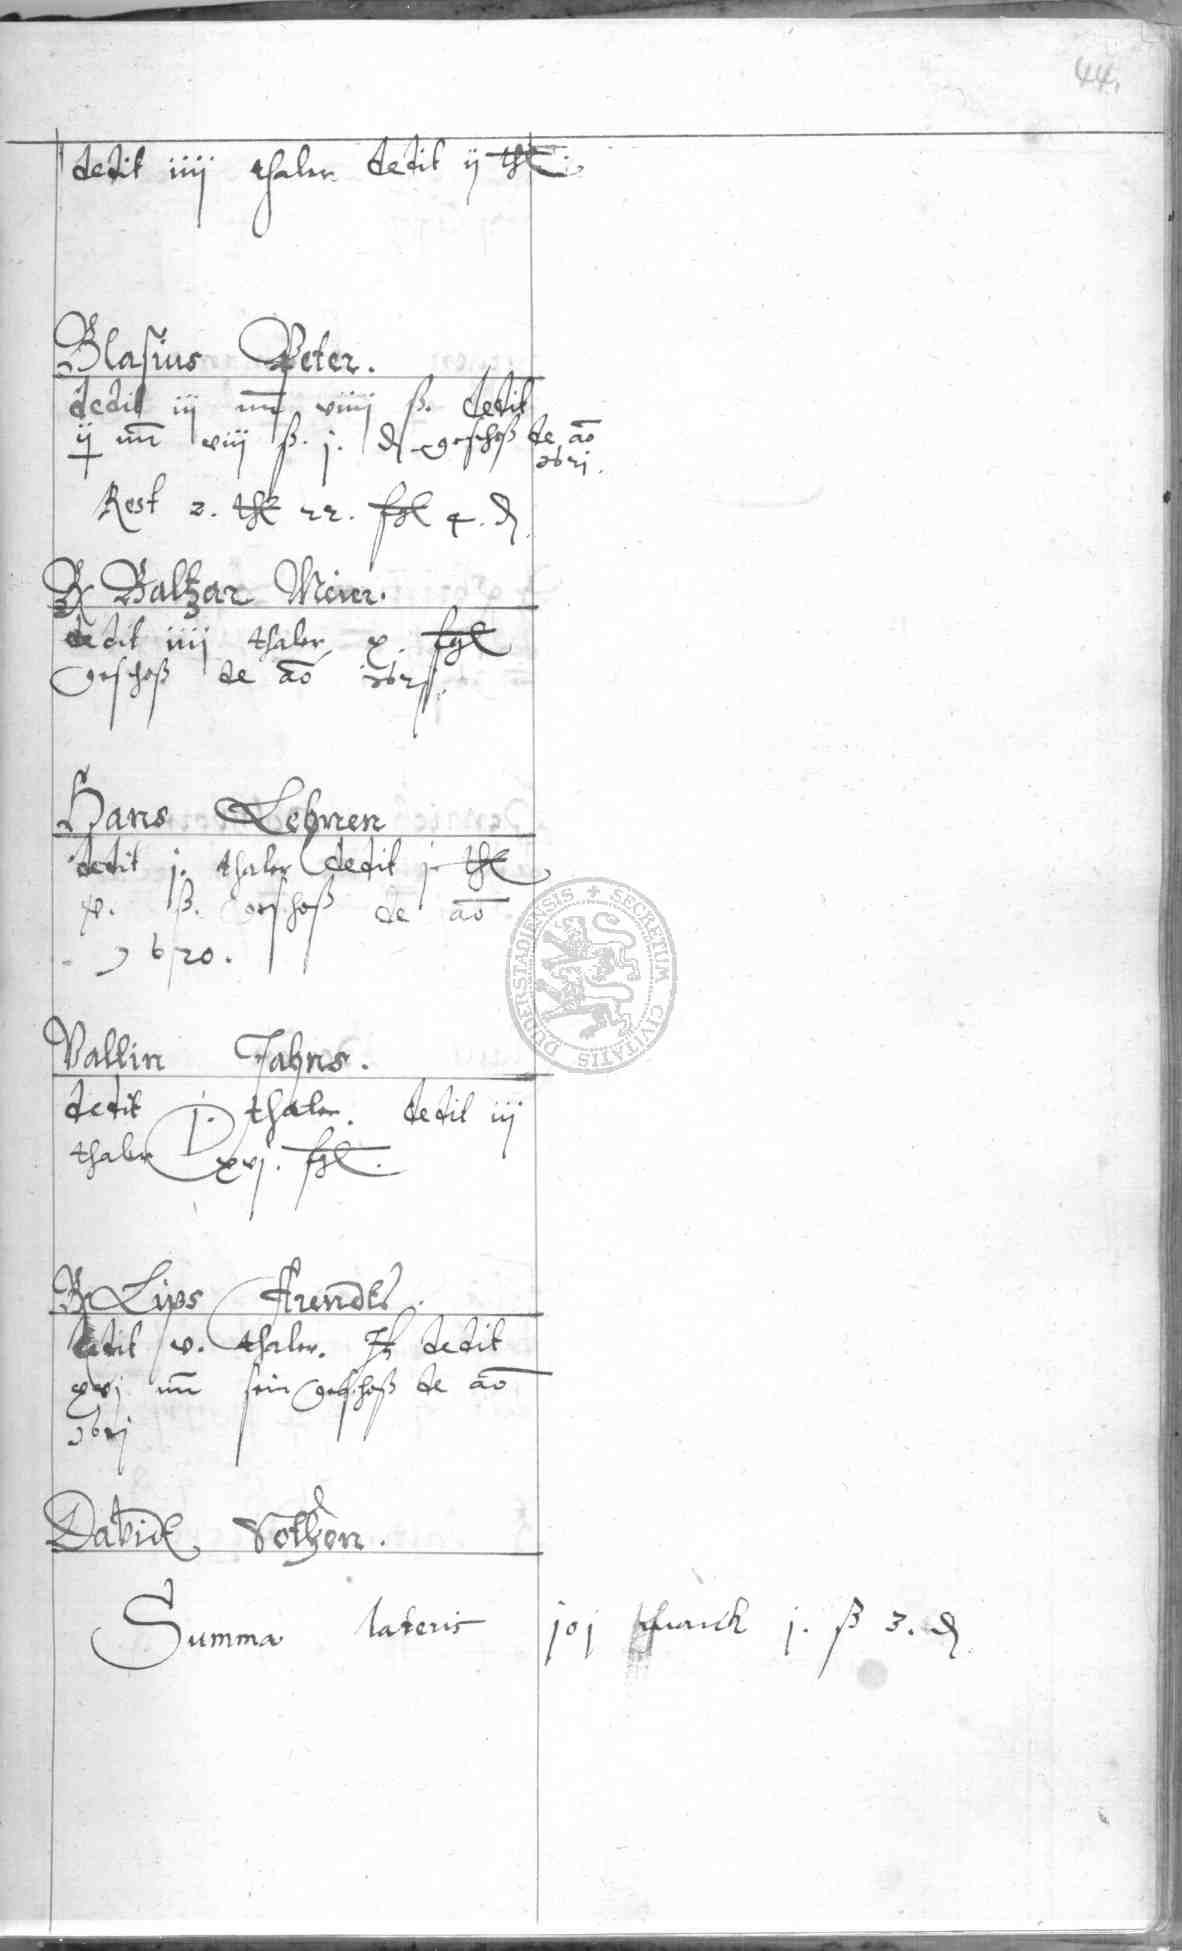 44.
dedit iiij thaler dedit ij thl.
Blasius Peter.
dedit iij mr viiij ß. dedit
ij mr viij ß. j. ₰ geschoß de ao
1621.
Rest 2. thl 22. sgl 4. ₰
Baltzar Meier.
dedit iiij thaler x. sgl
geschoß de ao 1621.
Hans Lehnen
dedit j. thaler dedit j. thl
x. ß. geschoß de ao
1620.
Valtin Jahns.
dedit j. thaler. dedit iij
thaler xvj. sgl.
Lips Arendes.
dedit v. thaler. It dedit
xvj mr sein geschoß de ao
1621
Davidt Vothen.
Summa lateris joj marck j. ß 3. ₰
SECRETUM CIVITATIS DUDERSTADIENSIS